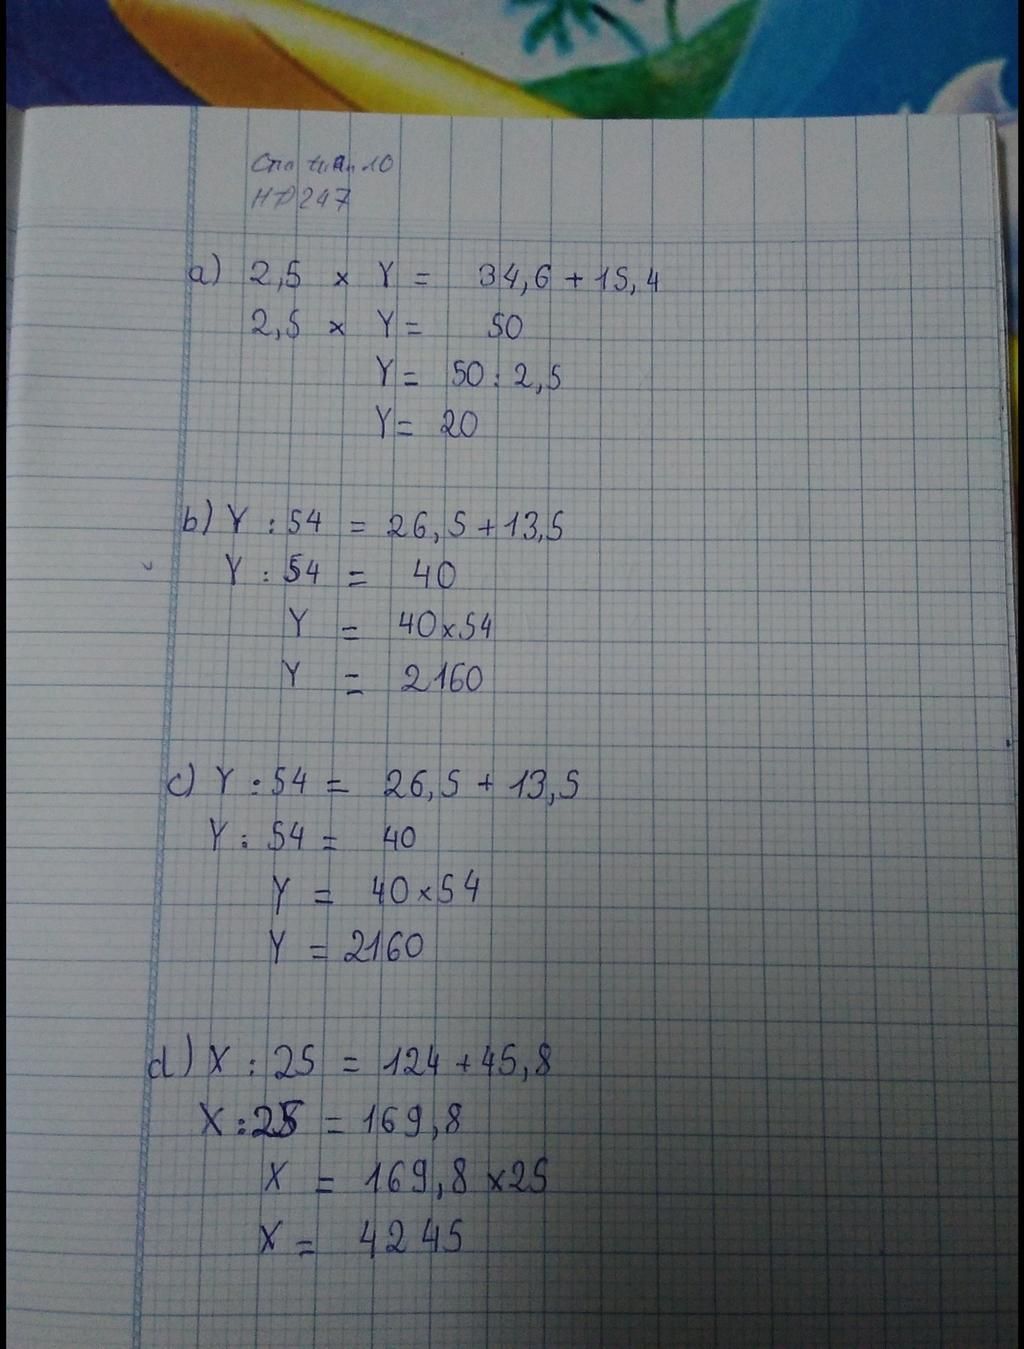 10
247
a) 2,5 x Y = 34,6 + 15,4
2,5 x Y = 50
Y = 50 : 2,5
Y = 20
b) Y : 54 = 26,5 + 13,5
Y : 54 = 40
Y = 40 x 54
Y = 2160
c) Y : 54 = 26,5 + 13,5
Y : 54 = 40
Y = 40 x 54
Y = 2160
d) X : 25 = 124 + 45,8
X : 25 = 169,8
X = 169,8 x 25
X = 4245